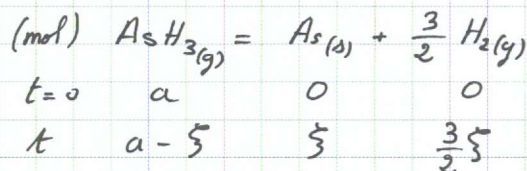 (mol) AsH3(g) = As(s) + 3/2 H2(g)
t=0 a 0 0
t a-ξ ξ 3/2 ξ